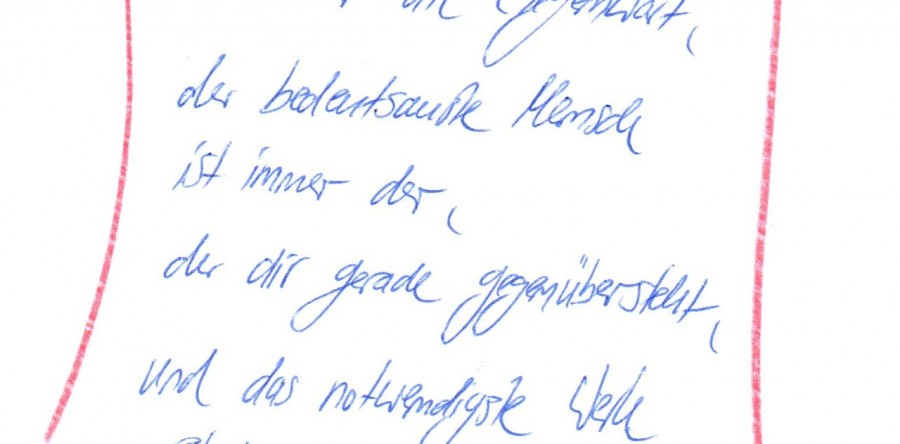 die Gegenwart,
der bedeutsamste Mensch
ist immer der,
der dir gerade gegenübersteht,
und das notwendigste Werk